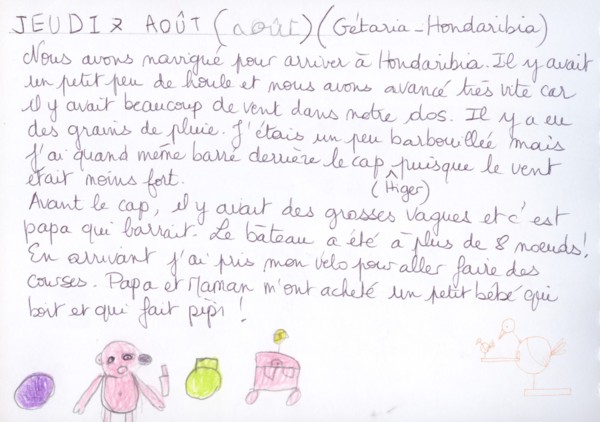 JEUDI 2 AOÛT (août) (Gétaria - Hondaribia)
Nous avons navigué pour arriver à Hondaribia. Il y avait
un petit peu de houle et nous avons avancé très vite car
il y avait beaucoup de vent dans notre dos. Il y a eu
des grains de pluie. J'étais un peu barbouillée mais
j'ai quand même barré derrière le cap puisque le vent
était moins fort.
(Higer)
Avant le cap, il y avait des grosses vagues et c'est
papa qui barrait. Le bâteau a été à plus de 8 noeuds!
En arrivant j'ai pris mon vélo pour aller faire des
courses. Papa et Maman m'ont acheté un petit bébé qui
boit et qui fait pipi !